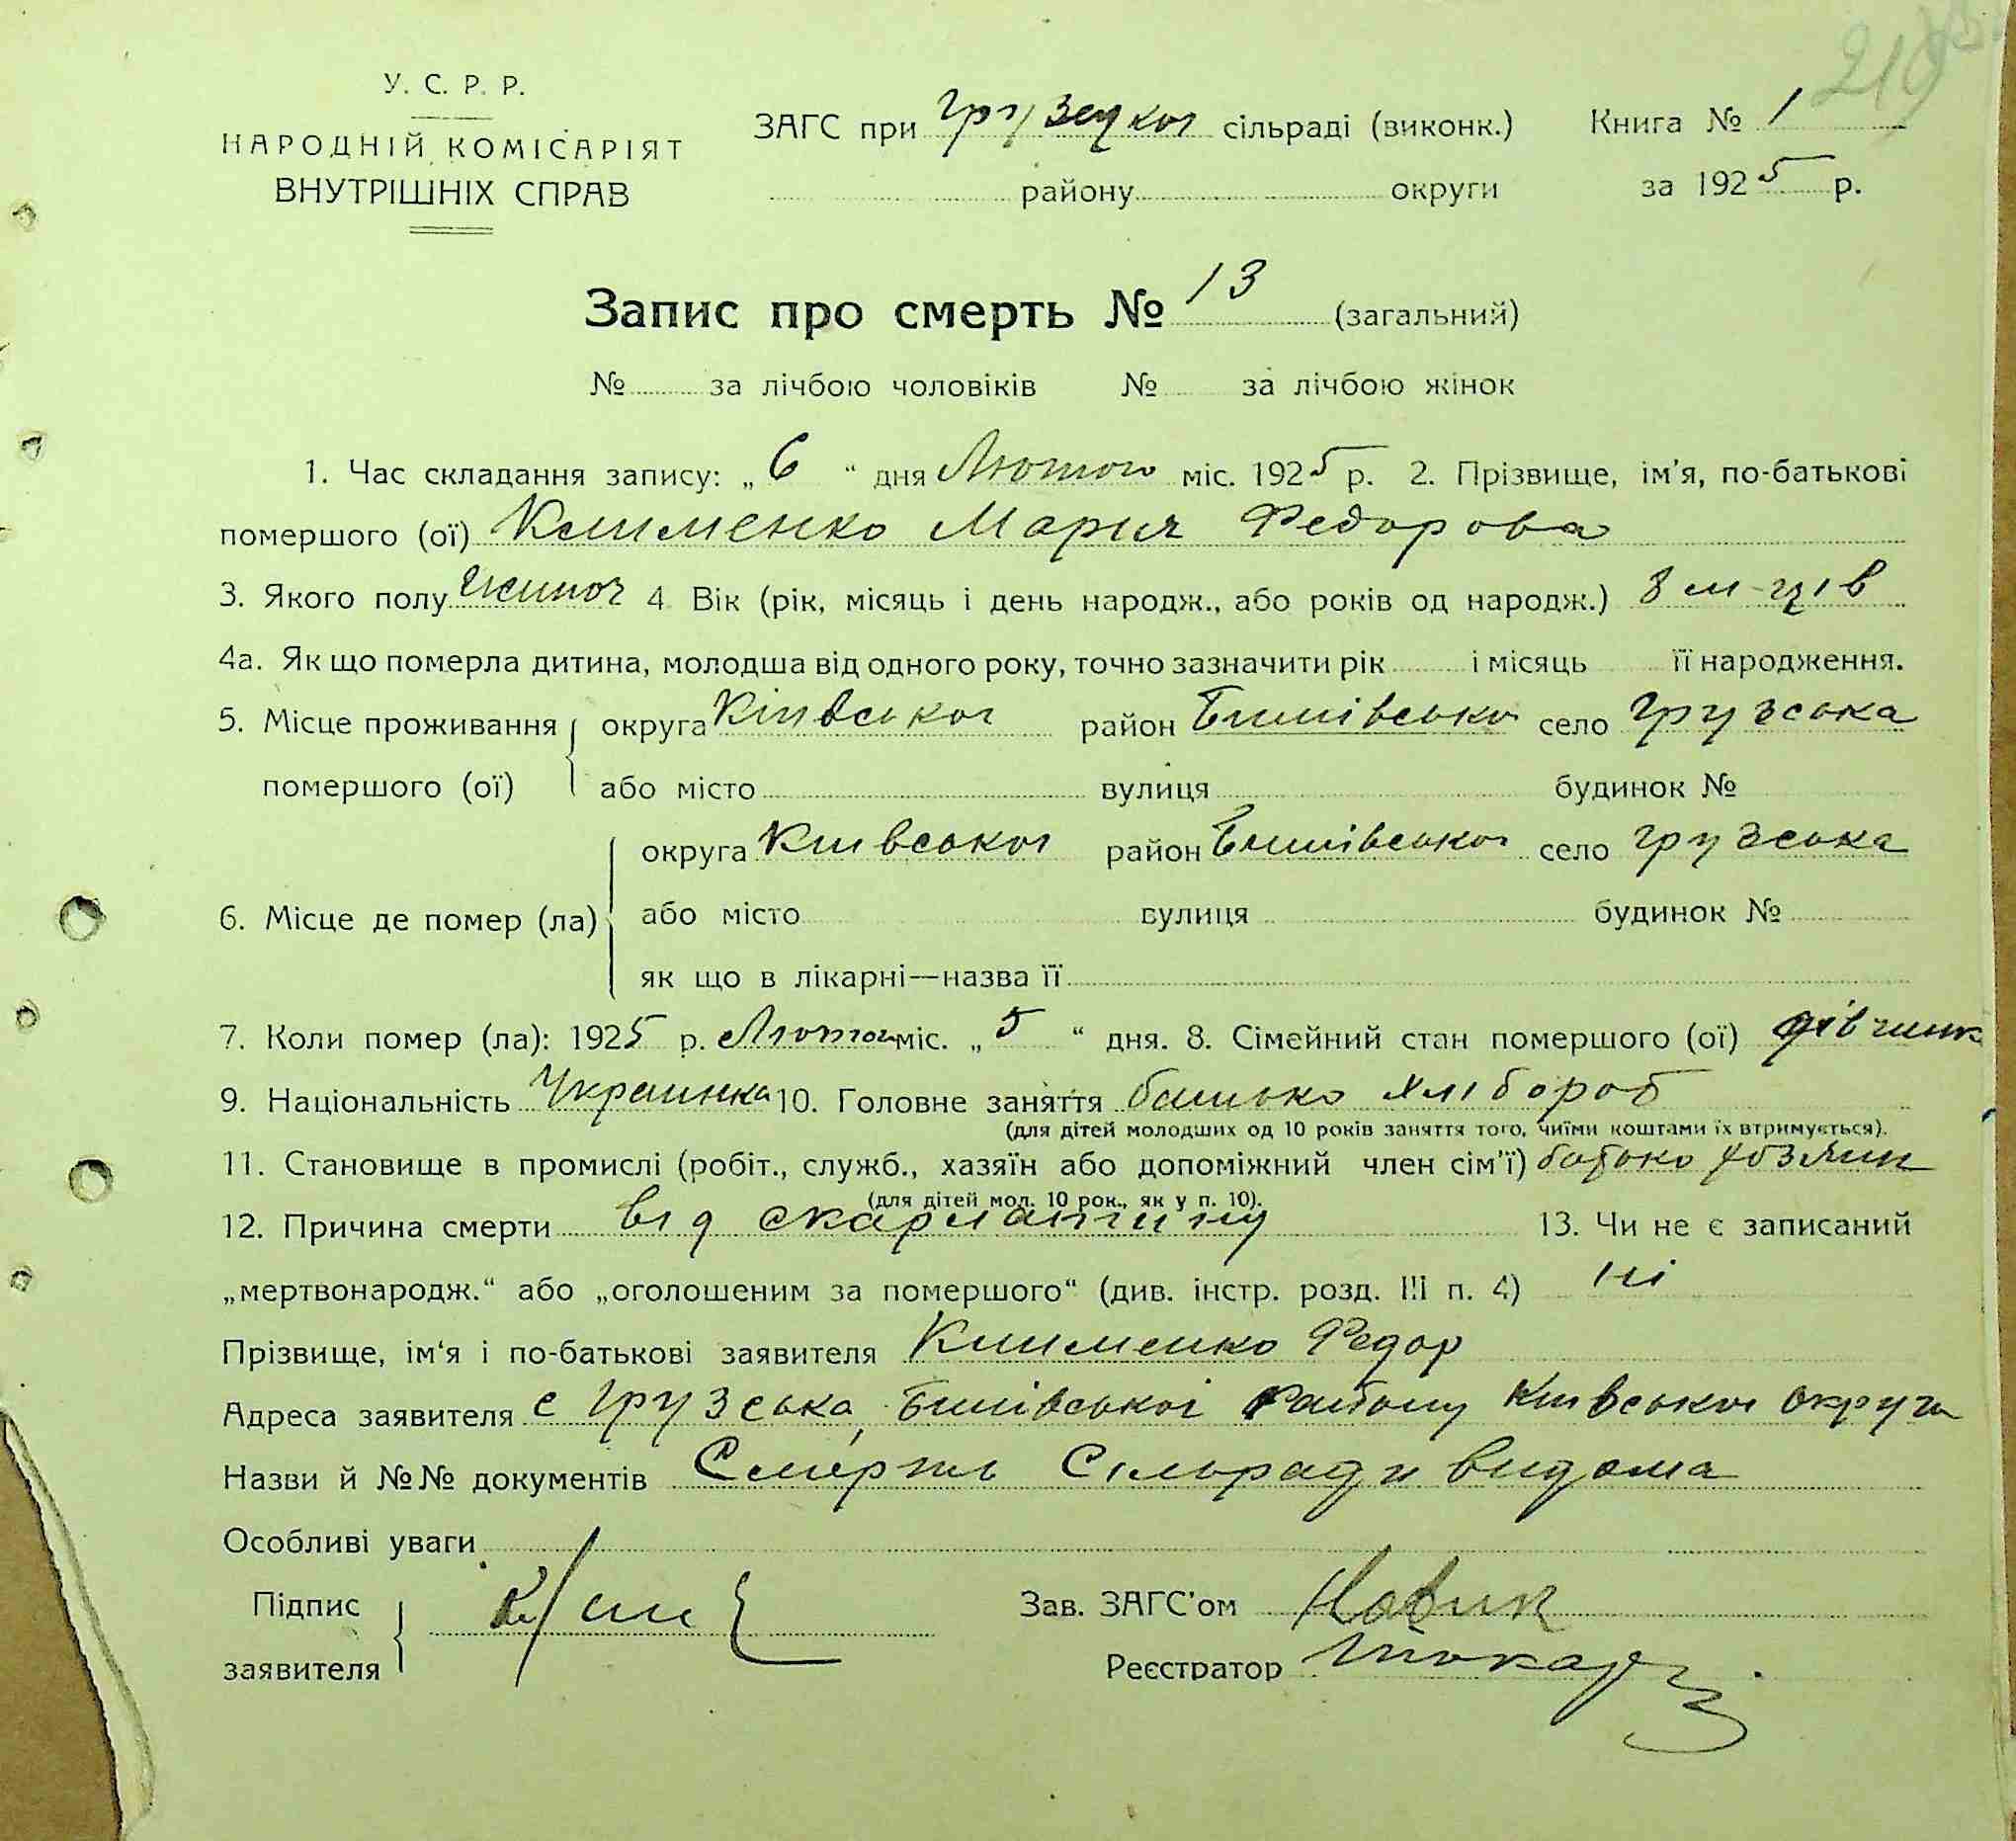 219
У. С. Р. Р.
НАРОДНІЙ КОМІСАРІЯТ
ВНУТРІШНІХ СПРАВ
ЗАГС при Грузецкої сільраді (виконк.) Книга № 1
району округи за 1925 р.
Запис про смерть № 13 (загальний)
№ за лічбою чоловіків № за лічбою жінок
1. Час складання запису: „ 6 “ дня Лютого міс. 1925 р. 2. Прізвище, ім'я, по-батькові
помершого (ої) Клименко Мария Федорова
3. Якого полу жиноч 4 Вік (рік, місяць і день народж., або років од народж.) 8 м-ців
4а. Як що померла дитина, молодша від одного року, точно зазначити рік і місяць її народження.
5. Місце проживання округа Київської район Бишівсько село Грузська
помершого (ої) або місто вулиця будинок №
округа Київської район Бишівської село Грузська
6. Місце де помер (ла) або місто вулиця будинок №
як що в лікарні—назва її
7. Коли помер (ла): 1925 р. Лютого міс. „ 5 “ дня. 8. Сімейний стан помершого (ої) дівчинк
9. Національність Украинка 10. Головне заняття батько хлібороб
(для дітей молодших од 10 років заняття того, чиїми коштами їх втримується).
11. Становище в промислі (робіт., служб., хазяїн або допоміжний член сім'ї) батько хозяин
(для дітей мол. 10 рок., як у п. 10).
12. Причина смерти від скарлатину 13. Чи не є записаний
„мертвонародж.“ або „оголошеним за помершого“ (див. інстр. розд. III п. 4) ні
Прізвище, ім'я і по-батькові заявителя Клименко Федор
Адреса заявителя с Грузська, Бишівської району Київської округи
Назви й №№ документів Смерть Сільради видома
Особливі уваги
Підпис Зав. ЗАГС'ом Новик
заявителя Реєстратор Токар